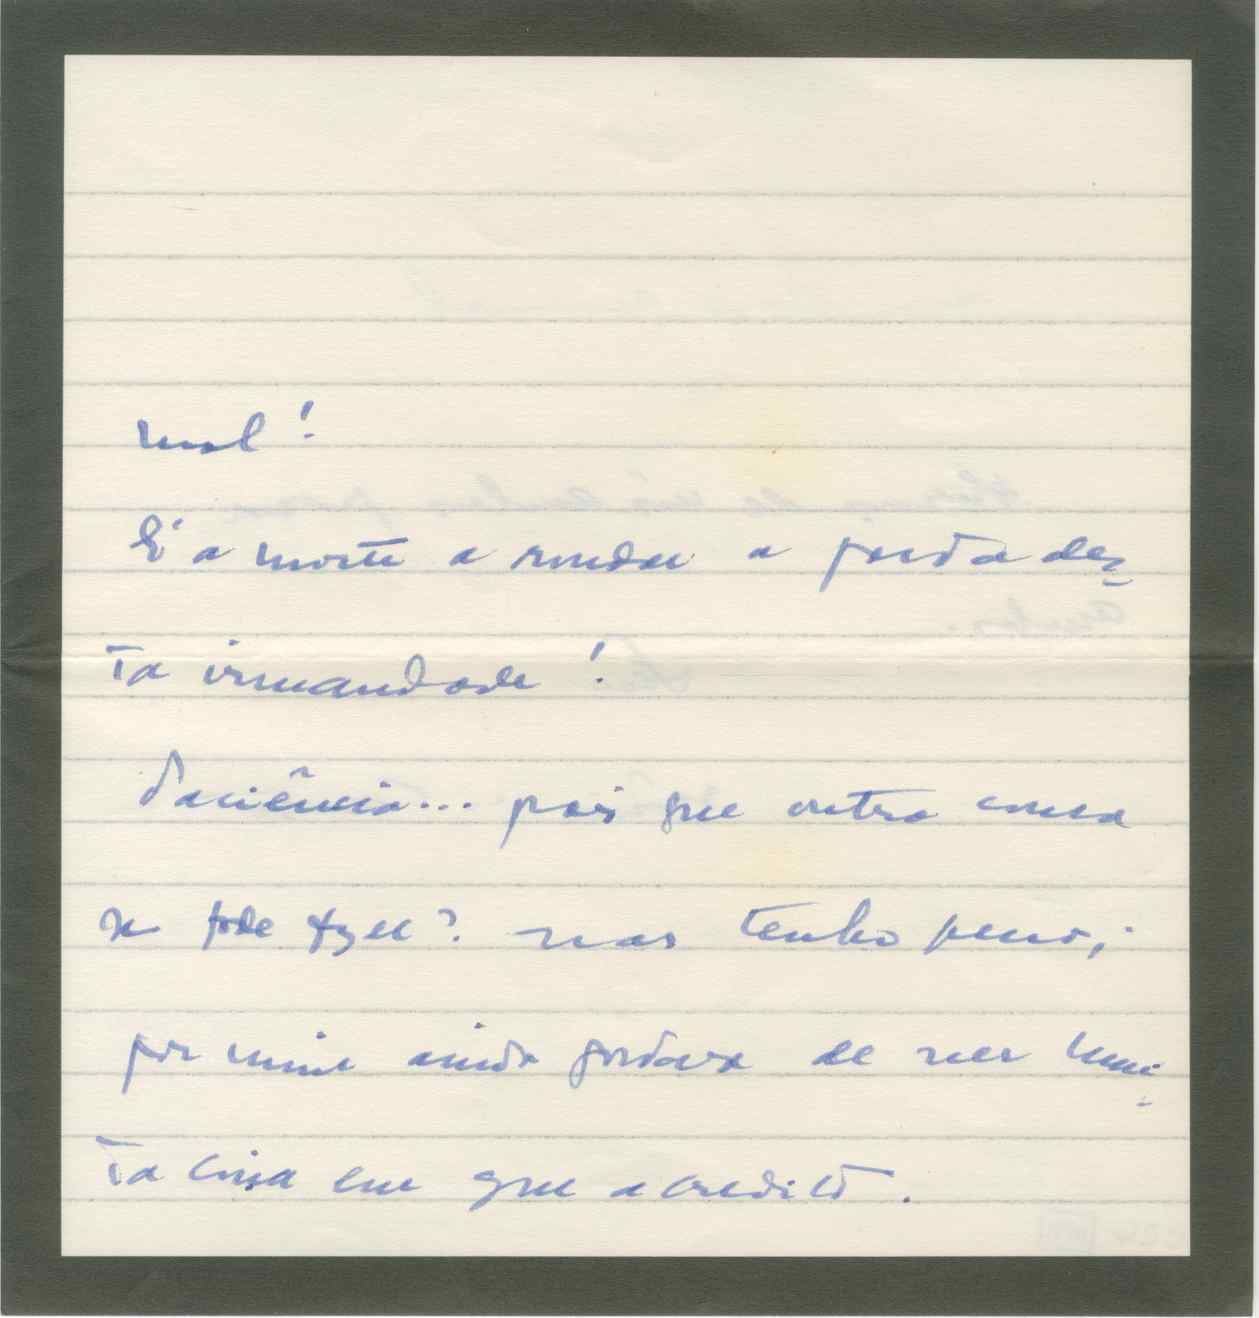 mal!
É a morte a rondar a porta des-
ta irmandade!
Paciência... pois que outra cousa
se pode fazer? mas tenho pena;
por mim ainda gostava de ver mui-
ta coisa em que acredito.